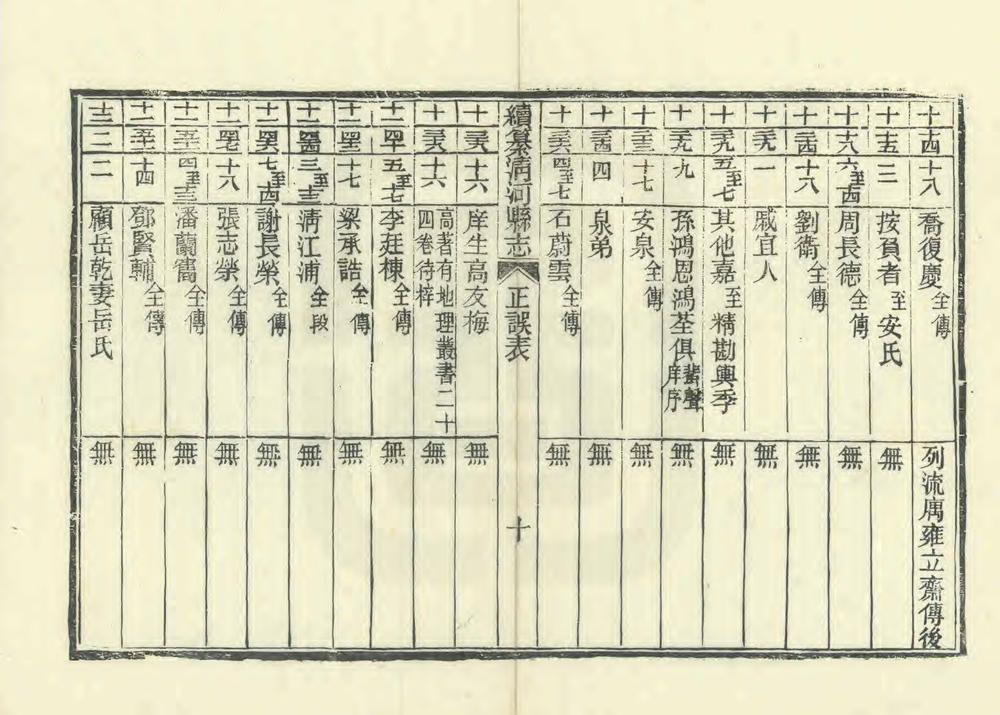 十 十四 十八 喬復慶全傳 列流寓雍立齋傳後
十 十五 三 按貟者至安氏 無
十 十六 六至十四 周長德全傳 無
十 二十四 十八 劉衛全傳 無
十 二十九 一 戚宜人 無
十 二十九 五至七 其他嘉至精勘輿季 無
十 二十九 九 孫鴻恩鴻荃俱蜚聲庠序 無
十 三十三 十七 安泉全傳 無
十 三十四 四 泉弟 無
十 三十六 四至七 石蔚雲全傳 無
續纂淸河縣志 正誤表 十
十 三十六 十六 庠生高友梅 無
十 三十六 十六 高著有地理叢書二十四卷待梓 無
十二 四十 五至七 李莛棟全傳 無
十二 四十三 十七 梁承誥全傳 無
十二 四十四 三至十三 淸江浦全段 無
十二 四十六 七至十四 謝長榮全傳 無
十二 四十七 十八 張志榮全傳 無
十二 五十 四至十三 潘蘭 全傳 無
十二 五十一 十四 鄧賢輔全傳 無
十三 二 二 顧岳乾妻岳氏 無